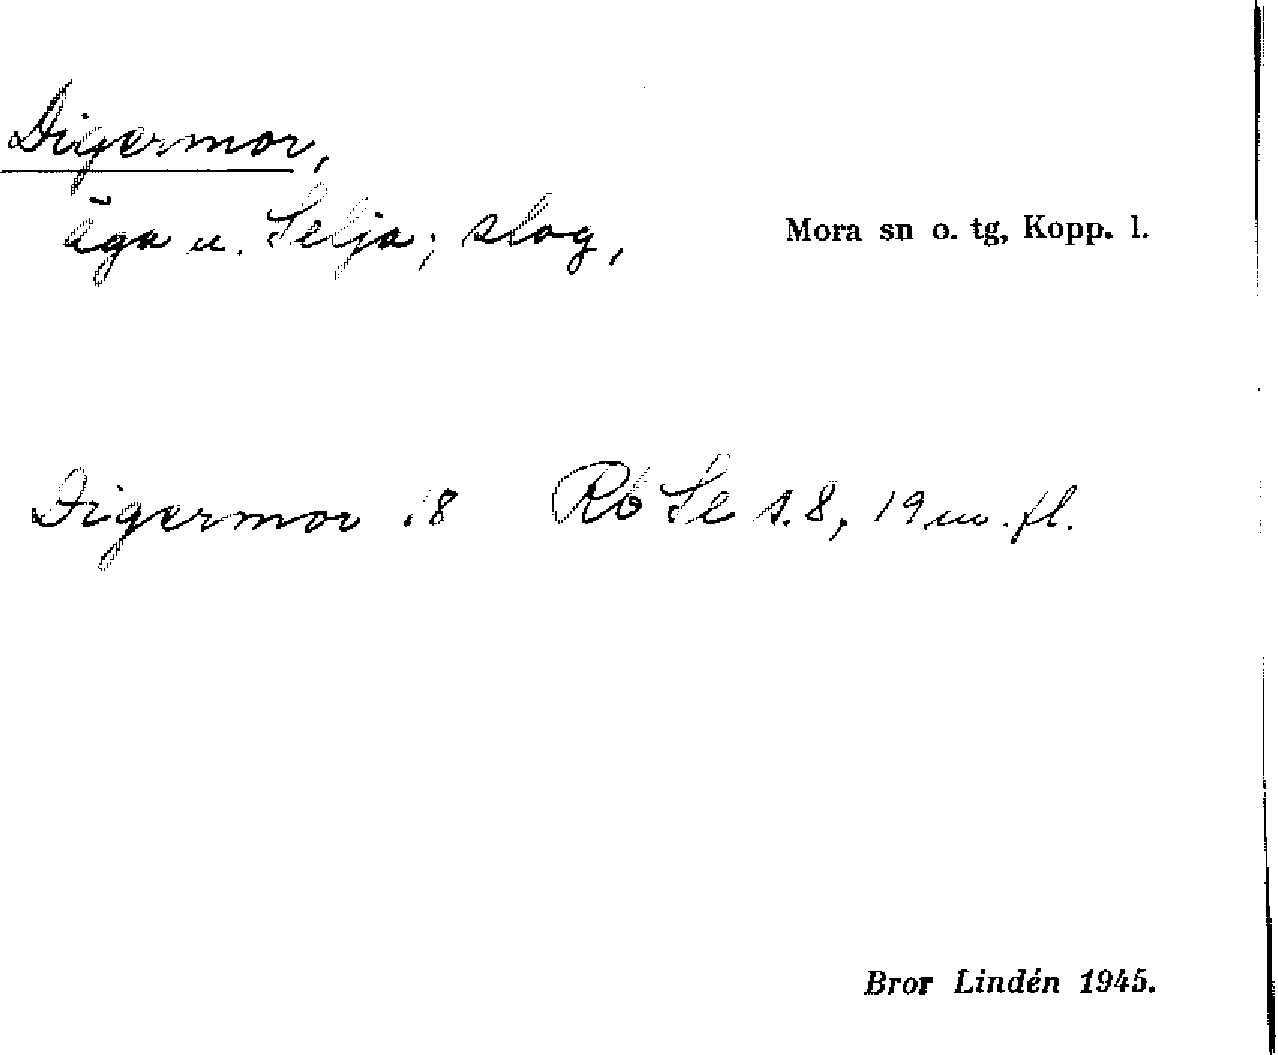 Digermor,
äga u. Selja; slog,
Mora sn o. tg, Kopp. l.
Digermor 18 Rb Se s. 8, 19 m. fl.
Bror Lindén 1945.